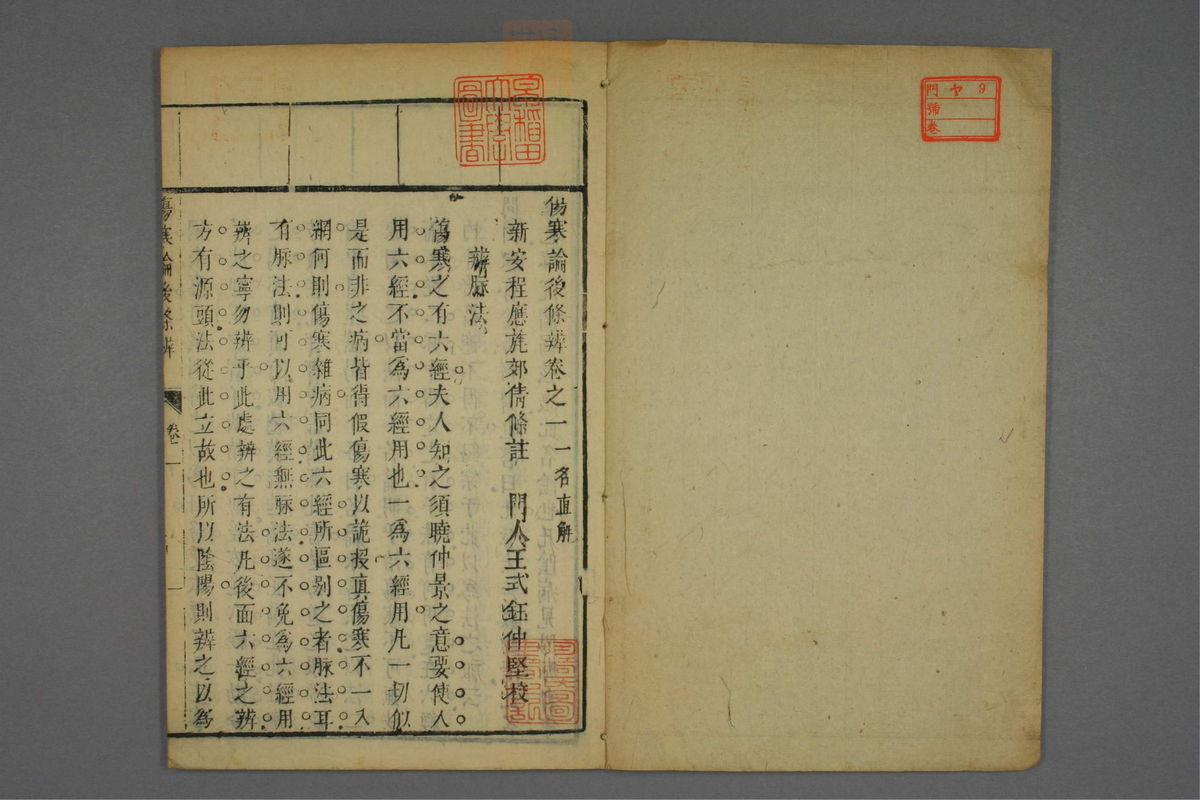 門 ヤ 9
號
卷
早稲田大學圖書
傷寒論後條辨卷之一 一名直解
新安程應旄郊倩條註 門人王式鈺仲堅校
辨脉法
傷寒之有六經夫人知之須曉仲景之意要使人
用六經不當為六經用也一為六經用凡一切似
是而非之病皆得假傷寒以詭投真傷寒不一入
網何則傷寒雜病同此六經所區别之者脉法耳
有脉法則可以用六經無脉法遂不免為六經用
辨之寧勿辨乎此處辨之有法凡後面六經之辨
方有源頭法從此立故也所以陰陽則辨之以為
傷寒論後條辨 卷一 一